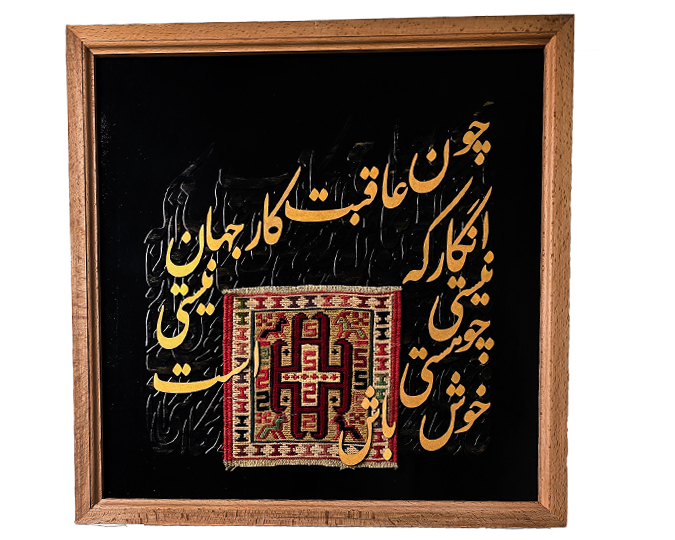 چون عاقبت کار جهان نیستی است
انگار که نیستی چو هستی خوش باش